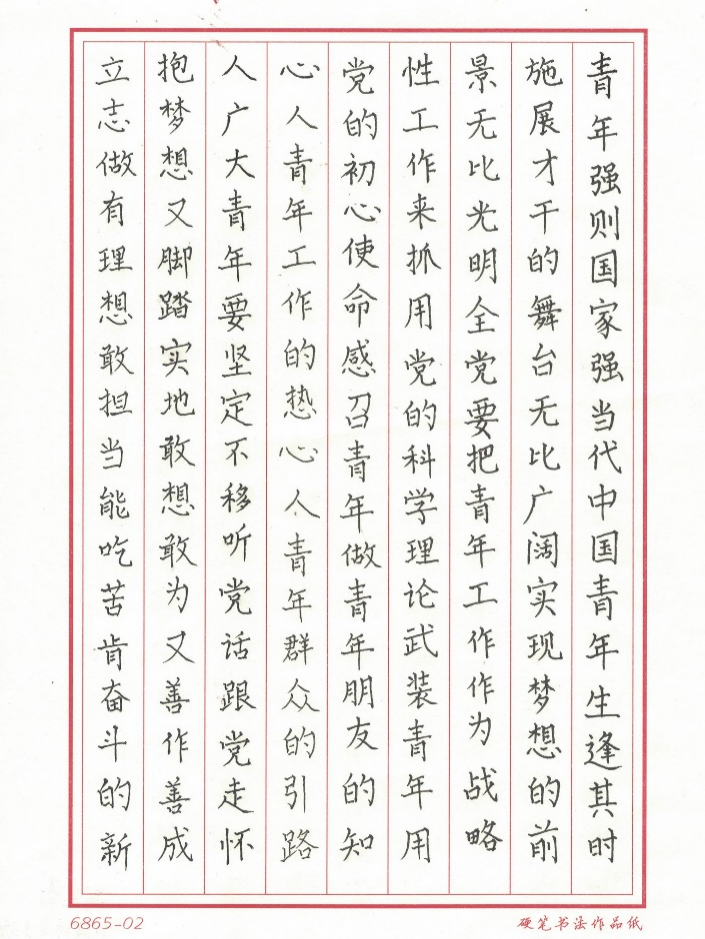 青年强则国家强当代中国青年生逢其时
施展才干的舞台无比广阔实现梦想的前
景无比光明全党要把青年工作作为战略
性工作来抓用党的科学理论武装青年用
党的初心使命感召青年做青年朋友的知
心人青年工作的热心人青年群众的引路
人广大青年要坚定不移听党话跟党走怀
抱梦想又脚踏实地敢想敢为又善作善成
立志做有理想敢担当能吃苦肯奋斗的新
6865-02
硬笔书法作品纸